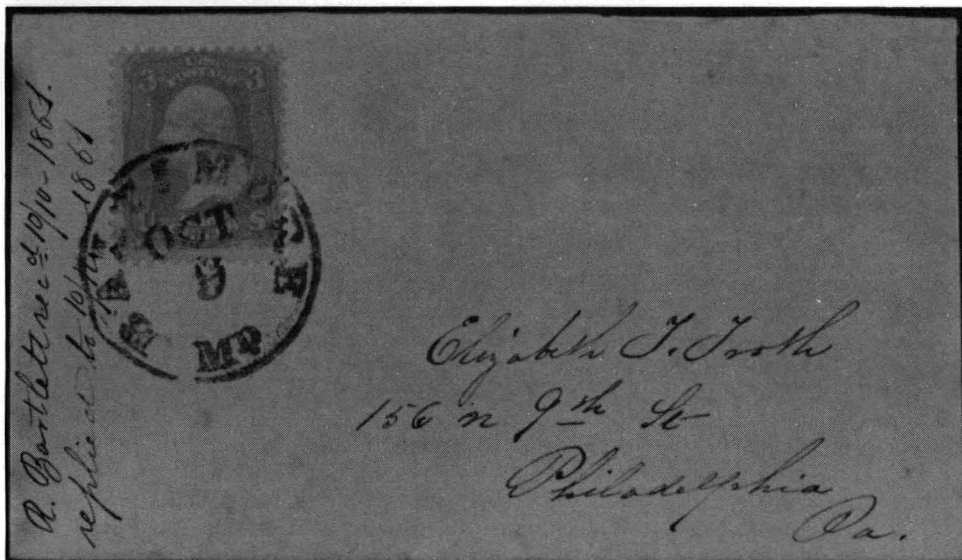 R. Bartlett rec'd 10/10-1861.
replied to 10/ 1861
3 3
BALTIMORE
OCT
9
Md.
Elizabeth T. Troth
156 n 9th St
Philadelphia
Pa.